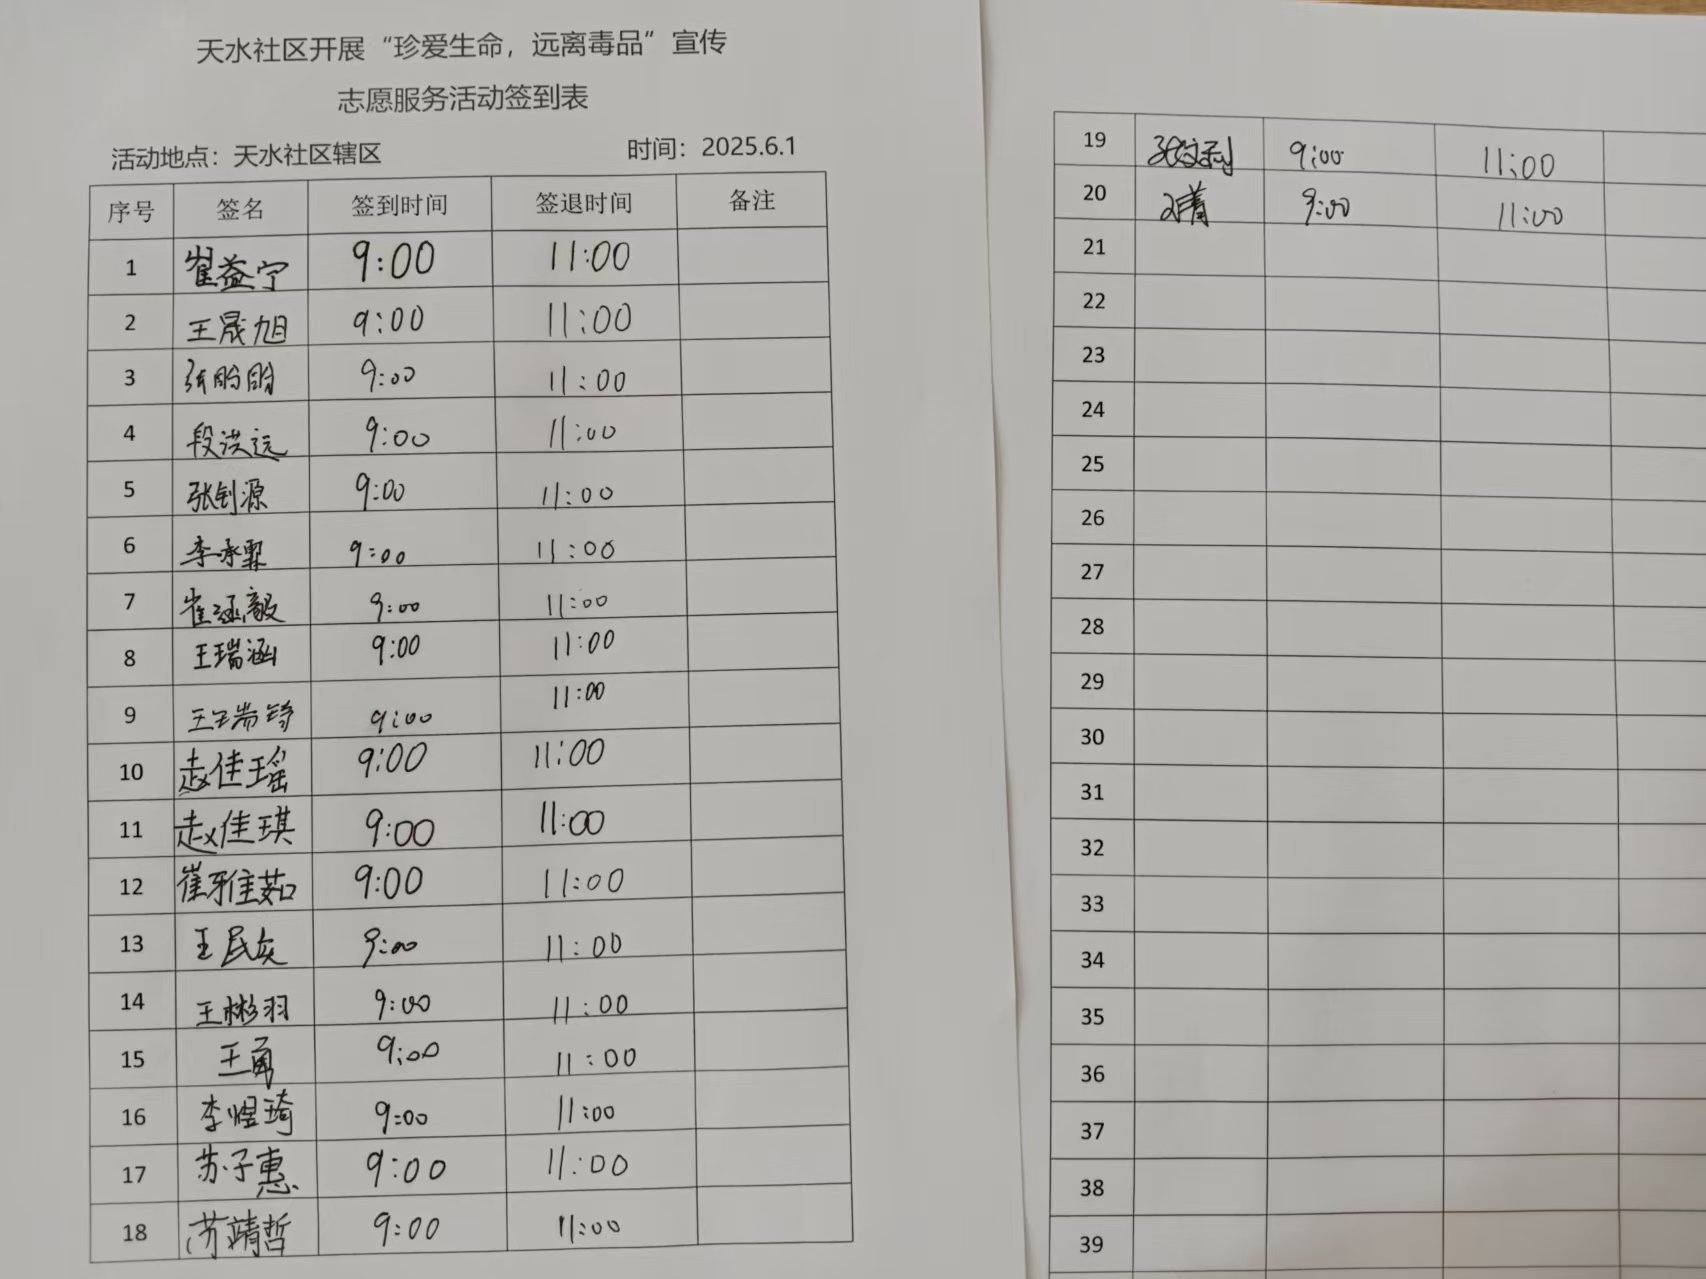 天水社区开展“珍爱生命，远离毒品”宣传
志愿服务活动签到表
活动地点：天水社区辖区 时间：2025.6.1
序号 签名 签到时间 签退时间 备注
1 崔益宁 9:00 11:00
2 王晟旭 9:00 11:00
3 9:00 11:00
4 段洪远 9:00 11:00
5 张钊源 9:00 11:00
6 李承霖 9:00 11:00
7 崔涵毅 9:00 11:00
8 王瑞涵 9:00 11:00
9 9:00 11:00
10 赵佳瑶 9:00 11:00
11 赵佳琪 9:00 11:00
12 崔雅茹 9:00 11:00
13 9:00 11:00
14 王彬羽 9:00 11:00
15 王勇 9:00 11:00
16 李煜琦 9:00 11:00
17 苏子惠 9:00 11:00
18 苏靖哲 9:00 11:00
19 9:00 11:00
20 9:00 11:00
21
22
23
24
25
26
27
28
29
30
31
32
33
34
35
36
37
38
39